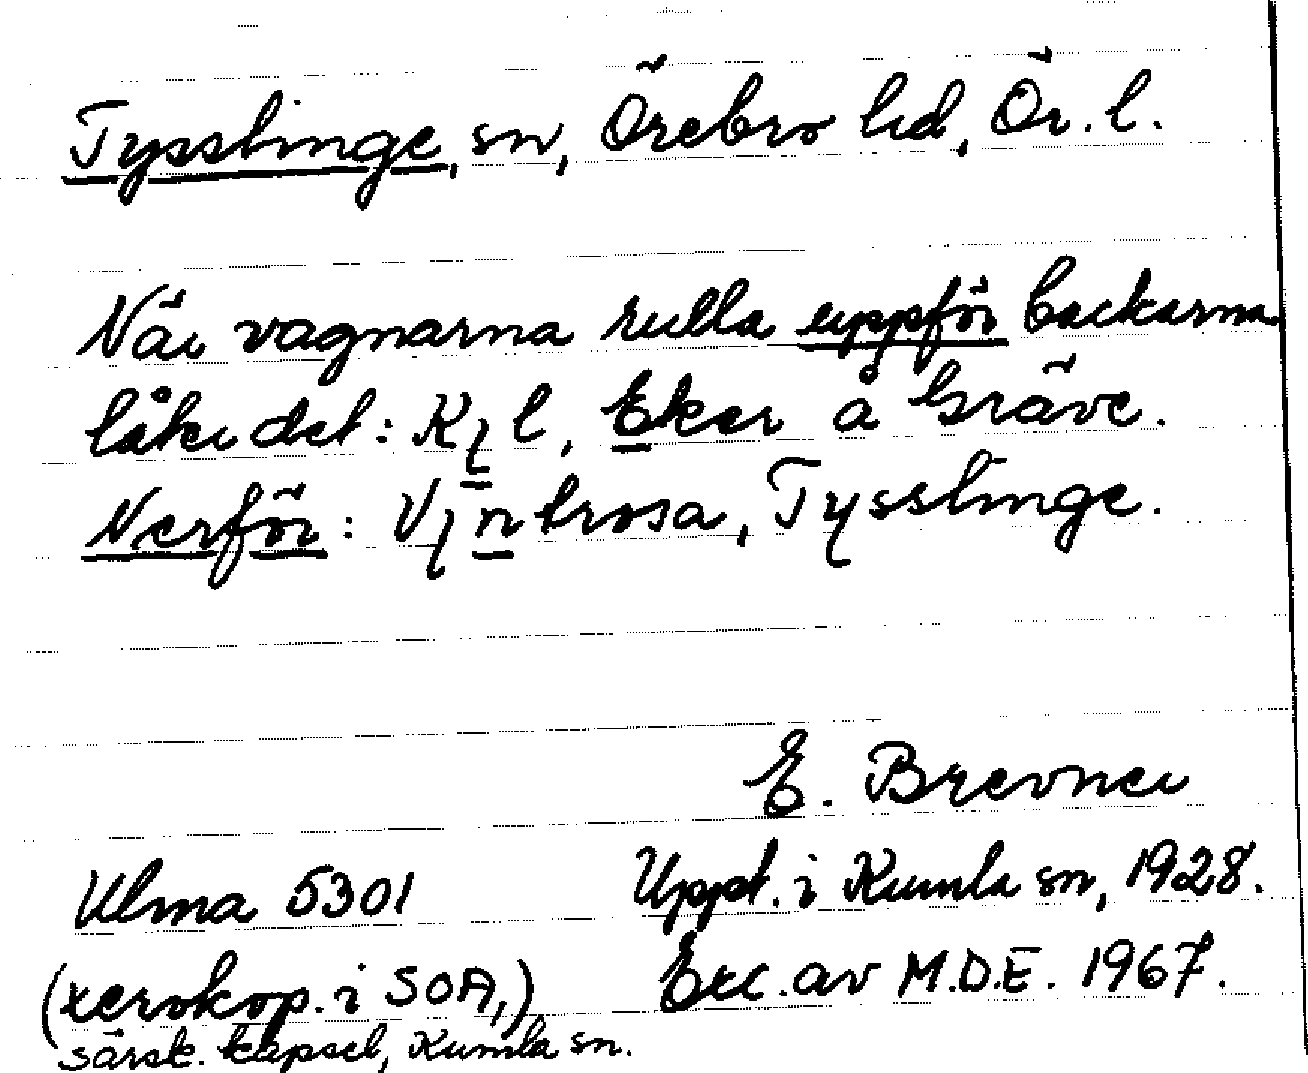 Tysslinge, sn, Örebro hd, Ör. l.
När vagnarna rulla uppför backarna
låter det: l, Eker å Gräve.
Nerför: Tysslinge.
E. Brevner
Ulma 5301 Uppt. i Kumla sn, 1928.
(xerokop. i SOA,) Exc. av M.D.E. 1967.
särsk. kapsel, Kumla sn.